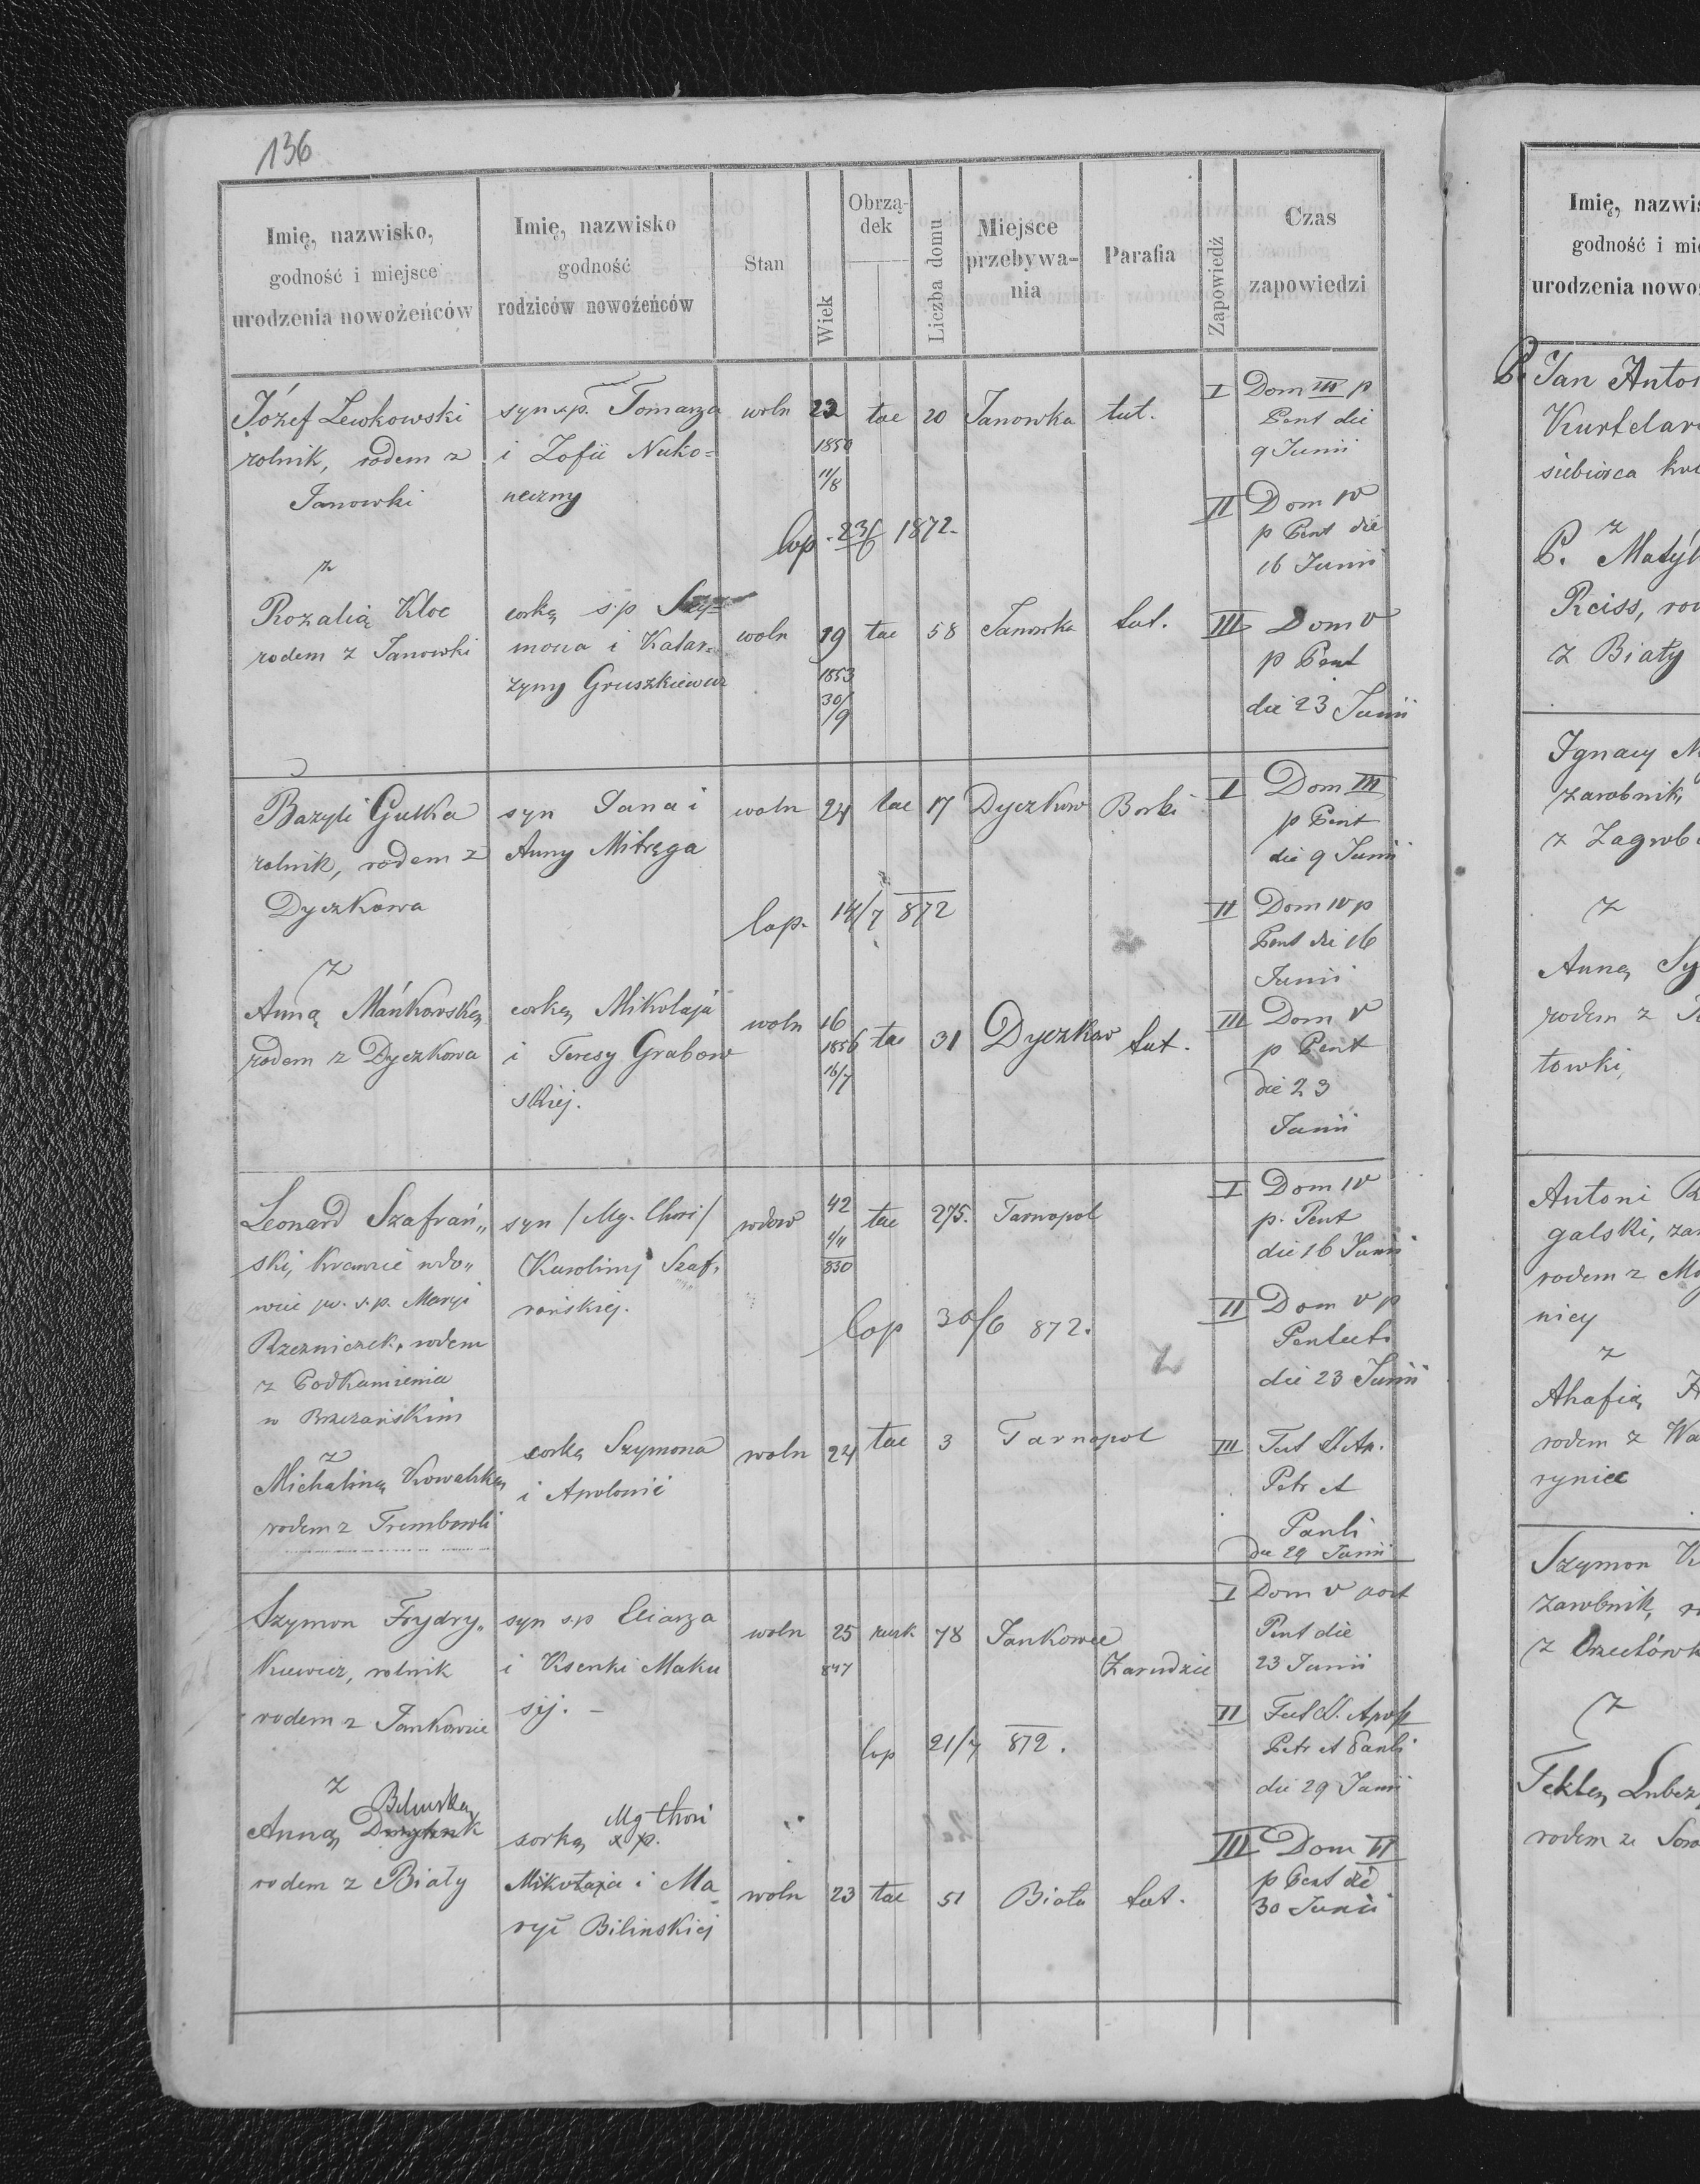 136
Imię, nazwisko,
godność i miejsce
urodzenia nowożeńców
Imię, nazwisko
godność
rodziców nowożeńców
Stan
Wiek
Obrzą-
dek
Liczba domu
Miejsce
przebywa-
nia
Parafia
Zapowiedź
Czas
zapowiedzi
Józef Lewkowski
rolnik, rodem z
Janowki
syn s.p. Tomasza
i Zofii Nuko-
neczny
woln 22 tac 20 Janowka tut.
1850
11/8
cop. 23/6 1872.
I Dom III p
Pent die
9 Junii
II Dom IV
p Pent die
16 Junii
z
Rozalią Kloc
rodem z Janowki
corką s.p. Szy-
mona i Katar-
zyny Gruszkiewicz
woln 19 tac 58 Janowka tut.
1853
30/9
III Dom V
p Pent
die 23 Junii
Bazyli Gutka
rolnik, rodem z
Dyczkowa
syn Jana i
Anny Mitręga
woln 24 tac 17 Dyczkow Borki
cop. 14/7 872
I Dom III
p Pent
die 9 Junii
II Dom IV p
Pent die 16
Junii
z
Anną Mańkowską
rodem z Dyczkowa
corką Mikołaja
i Teresy Grabow
skiej.
woln 16 tac 31 Dyczkow tut.
1856
16/7
III Dom V
p Pent
die 23
Junii
Leonard Szafrań„
ski, krawiec wdo„
wiec po s.p. Maryi
Rzezniczek, rodem
z Podkamienia
w Brzeżańskim
syn /Mg. Thori/
Karoliny Szaf„
rańskiej.
wdow 42 tac 275. Tarnopol
830
cop 30/6 872.
I Dom IV
p. Pent
die 16 Junii
II Dom V p
Pentect
die 23 Junii
z
Michaliną Kowalską
rodem z Trembowli
corką Szymona
i Apolonii
woln 24 tac 3 Tarnopol
III Fest SS. Ap.
Petr et
Pauli
die 29 Junii
Szymon Frydry„
kiewicz, rolnik
rodem z Jankowiec
syn s.p. Eliasza
i Ksenki Maku
sij. -
woln 25 rusk. 78 Jankowce
Zarudzie
847
cop 21/7 872.
I Dom V post
Pent die
23 Junii
II Fest SS. Apost
Petr et Pauli
die 29 Junii
z
Bilinską
Anną
rodem z Biały
Mg Thori
corką s.p.
Mikołaja i Ma
ryi Bilinskiej
woln 23 tac 51 Biała tut.
III Dom VI
p Pent die
30 Junii
Imię, nazwis
godność i mie
urodzenia nowoż
P. Jan Anton
siebiorca
z
P. Matyl
Reiss, ro
z Biały
Ignacy M
zarobnik,
z Zagrob
z
Anną Sy
rodem z
towki,
Antoni R
galski, zar
rodem z
nicy
z
Ahafią
rodem z Wa
ryniec
Szymon
zarobnik,
z
z
Teklą Lubcz
rodem ze